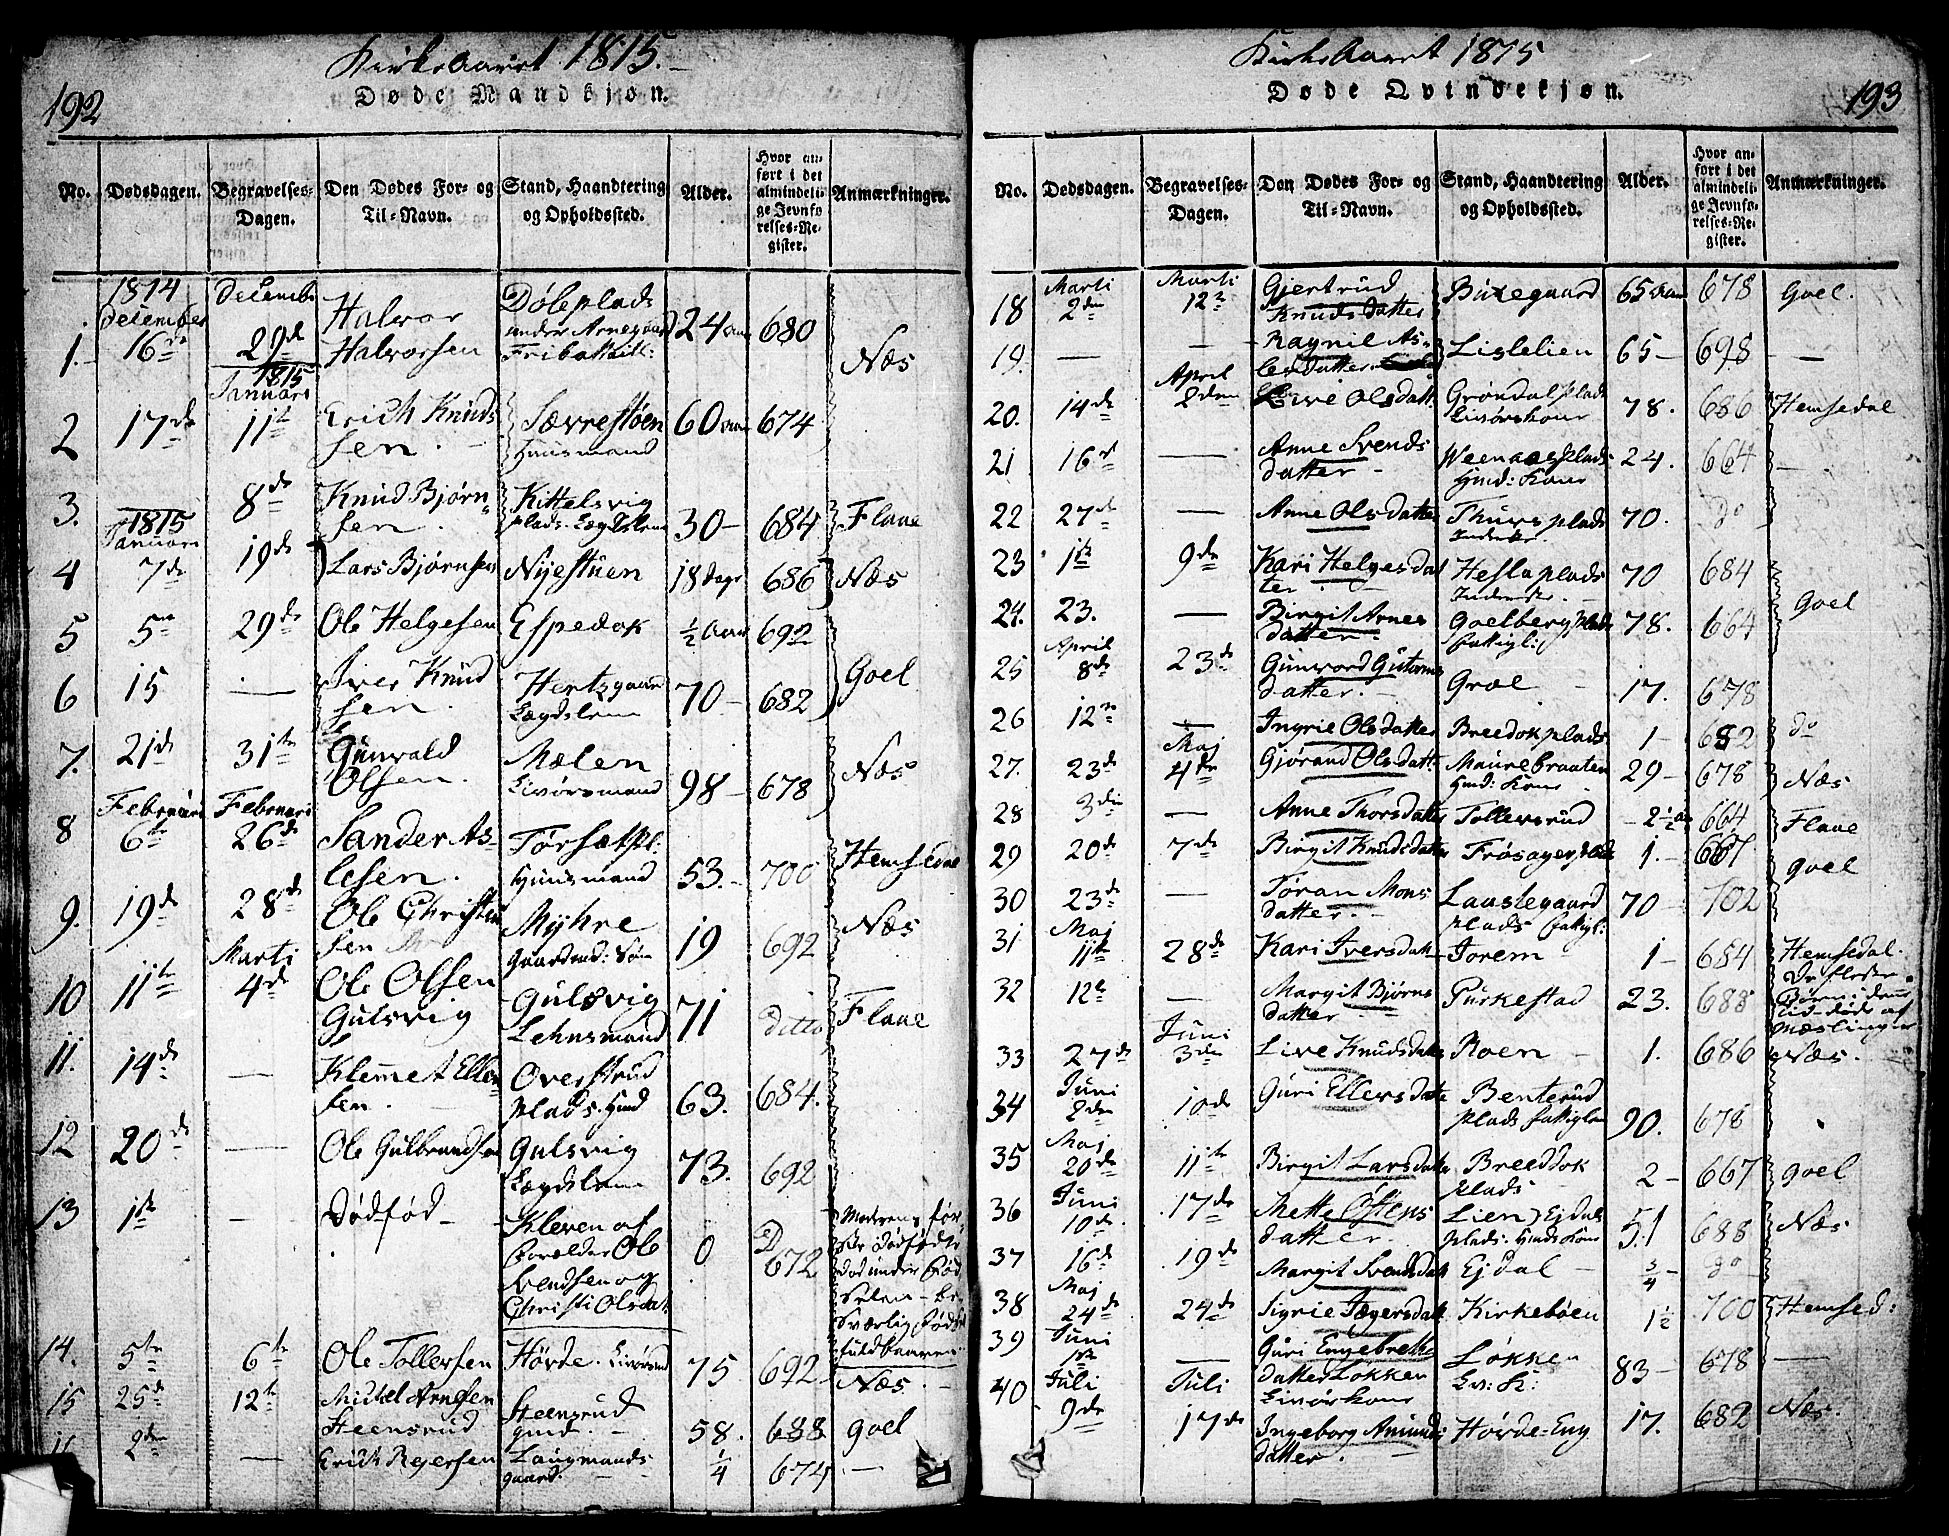 192
Kirke Aaret 1815.
Døde Mandkjøn.
No. Dødsdagen. Begravelses-Dagen. Den Dødes For- og Til-Navn. Stand, Haandtering og Opholdssted. Alder. Hvor anført i det almindelige Jevnførelses-Register. Anmærkninger.
1. 1814 December 16de December 29de Halvor Halvorsen Døleplads under 24 Aar 680 Næs
2 17de 1815 Januari 11te Erich Knudssen. Sævrestøen Huusmand 60 Aar 674
3. 8de Knud Bjørnsen. Kittelsvig plads 30 684 Flaae
4 1815 Januari 7de 19de Lars Bjørnsen Nijestuen 18 Dage 686 Næs
5 5te 29de Ole Helgesen Espedok ½ Aar 692
6 15 — Iver Knudsen. Hertzgaard Lægdslem 70 682 Goel
7. 21de 31te Gunvald Olsen. Mælen Livørsmand 98 678 Næs
8 Februari 6te Februari 26de Sander Aslesen. Tørsætpl: Huusmand 53. 700 Hemsedal
9. 19de 28de Ole Christensen Myhre Gaardmd: Søn 19 692 Næs
10 11te Marti 4de Ole Olsen Gulsvig Gulsvig Lehnsmand 71 ditto Flaae
11. 14de — Klemet Ellensen. Overstrud plads. Hmd 63. 684.
12 20de — Ole Gulbrandsen Gulsvig Lægdslem 73. 692
13 1ste — Dødfød Kleven af Forældre Ole Svendsen og Christi Olsdat. 0 D 672
14. 5te 6te Ole Tollefsen Hövde. Livørsmd 75 692 Næs.
15 25de 12te Michel Arnesen Steensrud Steensrud gmd. 58. 688 goel
2den — Erich Reiersen Langmandsgaard. ¼ 674 —
193
Kirke Aaret 1815
Døde Qvindekjøn.
No. Dødsdagen. Begravelses-Dagen. Den Dødes For- og Til-Navn. Stand, Haandtering og Opholdssted. Alder. Hvor anført i det almindelige Jevnførelses-Register. Anmærkninger.
18 Marti 2den Marti 12te Gjertrud Knudsdatter Børegaard 65 Aar 678 Goel.
19. — — Ragnil Aslesdatter Lislelien 65 698 —
20. 14de April 2den Live Olsdatt: Grøndal plads Livørskone 78. 686 Hemsedal
21 16de — Anne Svendsdatter plads Hmd: Kone 24. 664 —
22 27de — Anne Olsdatter Thuvs plads Inderster 70. do
23 1ste 9de Kari Helgesdatter Heslaplads Inderster 70 684
24. 23. — Birgit Arnesdatter. Goelberg plads fattigl: 78. 664 Goel
25 April 8de 23de Gunvord Gutormsdatter. Grøe 17. 678
26 12te — Ingrie Olsdatter Breedokplads 1 682 do
27. 23de Maj 4de Gjørand Olsdatt: Maurebraaten Hmd: Kone 29 678 Næs
28 3die — Anne Thorsdatter Tollefsrud 2½ 664 Flaae
29 20de 7de Birgit Knudsdatter Frøsager plads 1. 667 goel
30 23de — Jøran Monsdatter. Laustegaard plads fattigl: 70 702
31 Maj 11te 28de Kari Iversdatt Jorem 1 684 Hemsedal.
32 12te — Margit Bjørnsdatter Purkestad 23. 688 De fleste Børn i denne tid døde af Mæslinger
33 27de Juni 3die Live Knudsdatter Roen 1. 686 Næs.
34 Juni 2den 10de Guri Ellersdatter Benterud plads fattiglem 90. 678
35 Maj 20de 11te Birgit Larsdatter Breeddok plads 2 667 goel
36 Juni 10de 17de Mette Østensdatter. Lien) Ejdals plads: Hmds Kone 51 688 Næs
37 16de 19de Margit Svendsdatt Ejdal ¾ do
38 Maj 24de 24de Sigrie Jægersdatt Kirkebøen 1½ 700 Hemsed:
39 Juni 1ste — Guri Engebrettsdatter Løkken Livørskone Løkken Lv: K: 83 678 —
40 Juli 9de Juli 17de Ingeborg Amundsdatter. Høvde-Eng 17. 682 Næs.